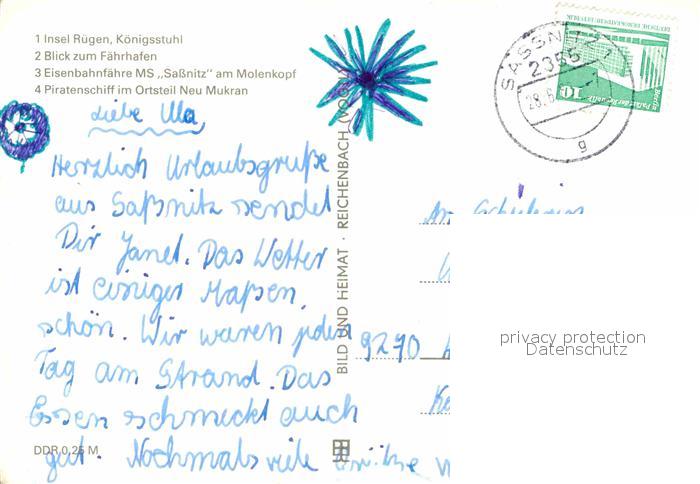 1 Insel Rügen, Königsstuhl
2 Blick zum Fährhafen
3 Eisenbahnfähre MS „Saßnitz" am Molenkopf
4 Piratenschiff im Ortsteil Neu Mukran
Liebe Ulla,
Herzlich Urlaubsgrüße
aus Saßnitz sendet
Dir Janet. Das Wetter
ist einiger Maßen
schön. Wir waren jeden
Tag am Strand. Das
Essen schmeckt auch
gut. Nochmals viele Grüße
DDR 0,25 M
BILD UND HEIMAT · REICHENBACH (VOGTL)
SASSNITZ 1
2355
28.6
g
10
DEUTSCHE DEMOKRATISCHE REPUBLIK
Berlin Palast der Republik
An
9270
privacy protection
Datenschutz